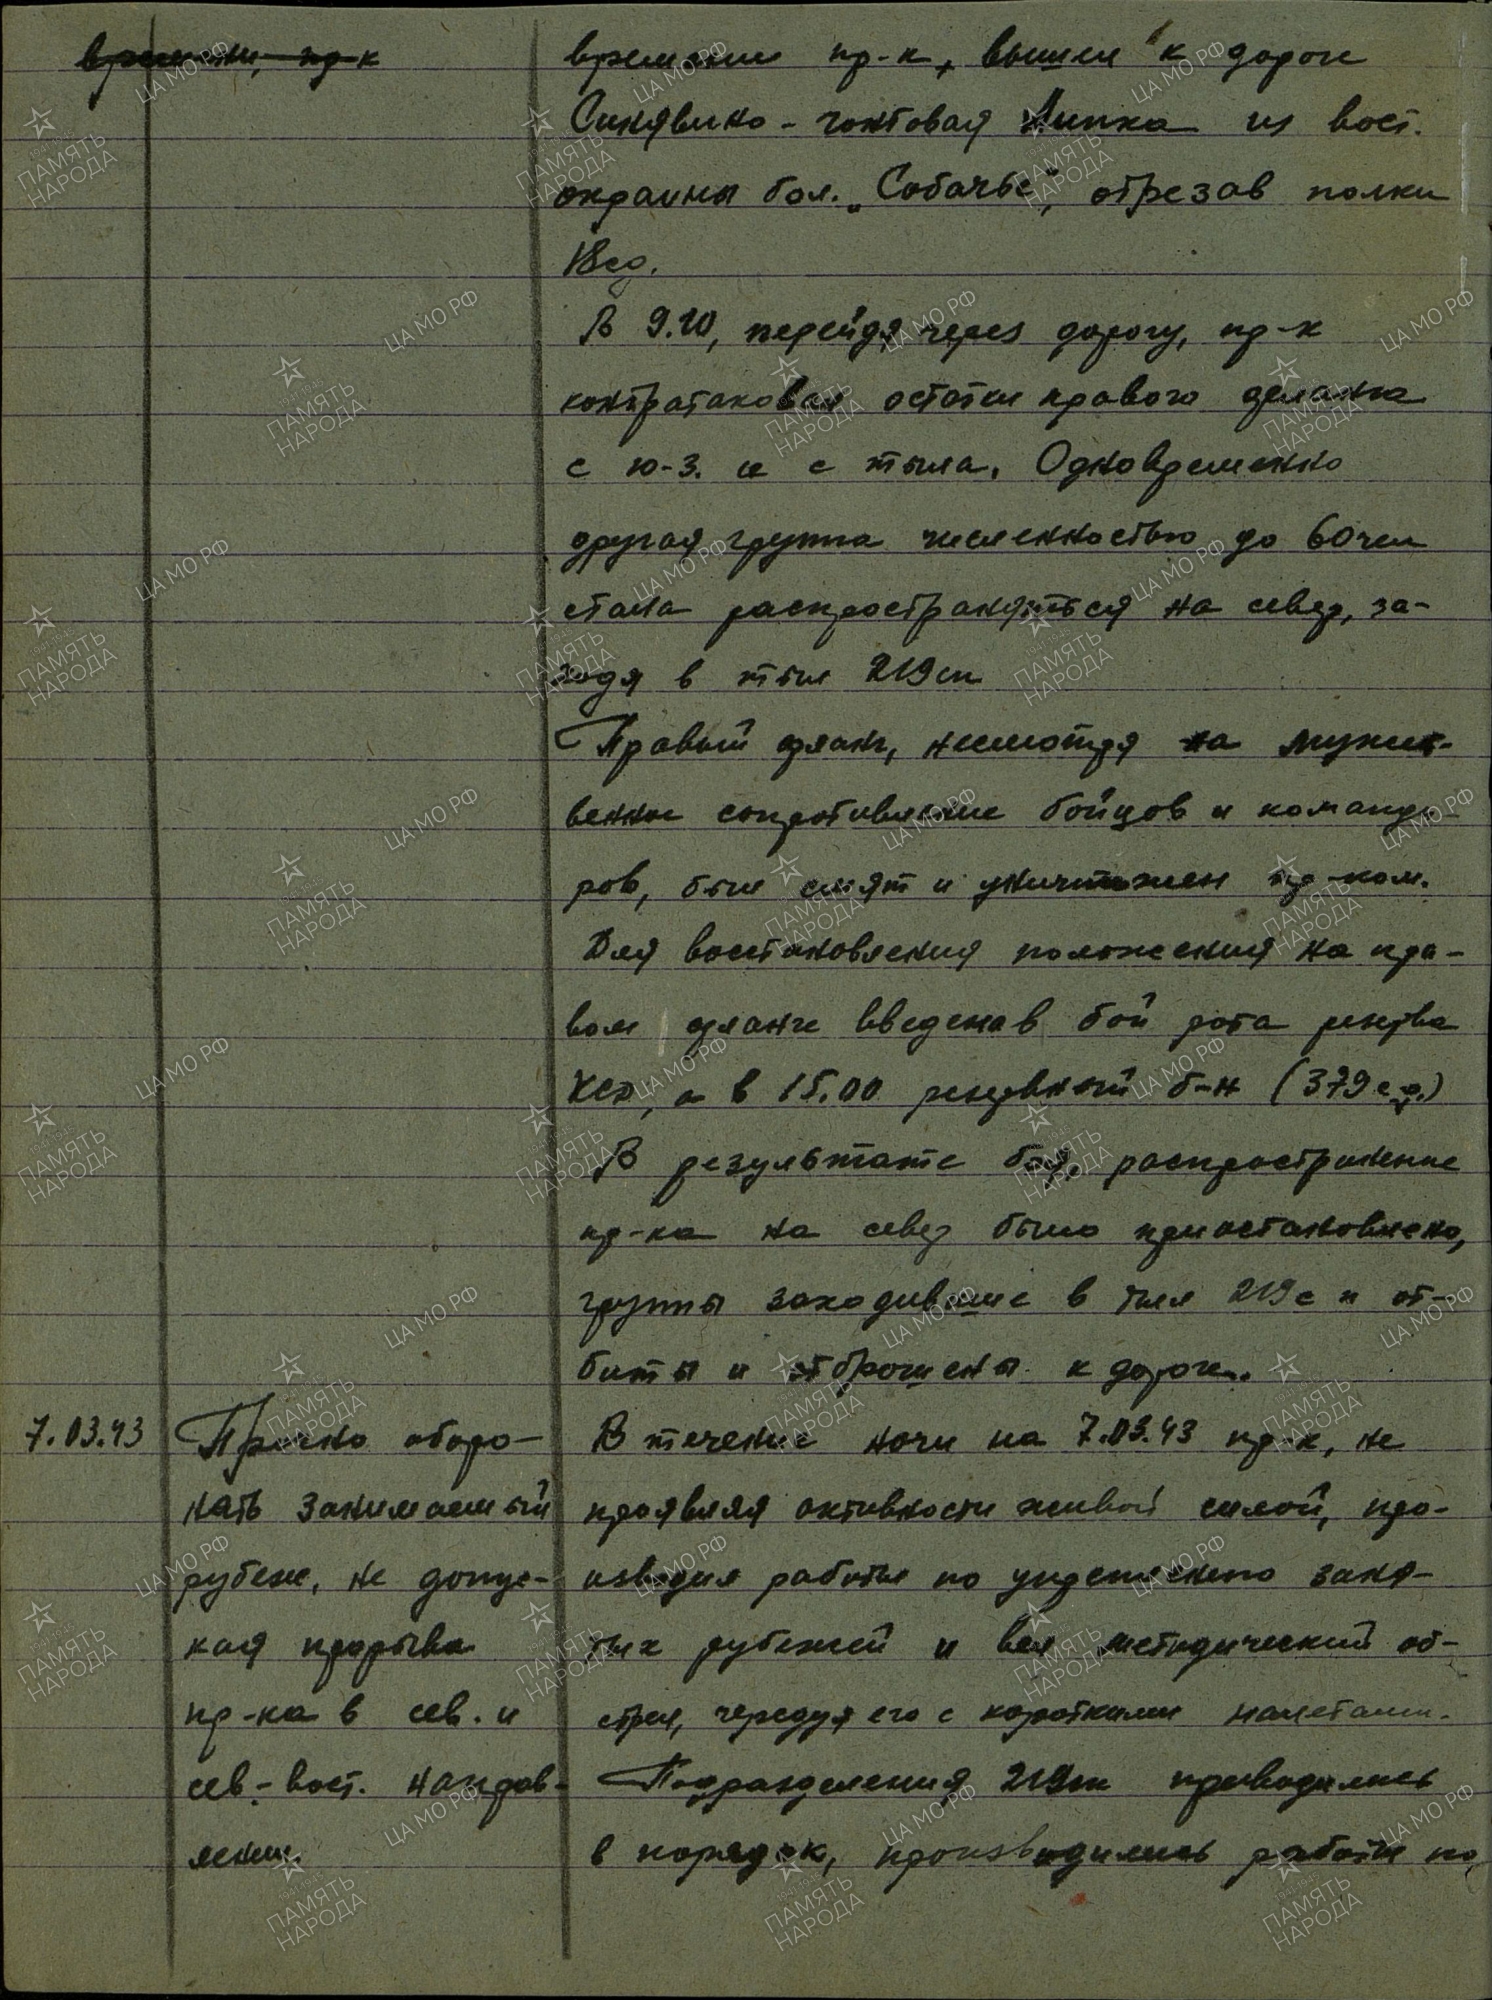 времени, пр-к
времени пр-к, вышел к дороге
Синявино - гонтовая Липка из вост.
окраины бол. „Собачье“, отрезав полки
18сд.
В 9.20, перейдя через дорогу, пр-к
контратаковал остатки правого фланга
с ю-з. и с тыла. Одновременно
другая группа численностью до 60 чел
стала распространяться на север, за-
ходя в тыл 219сп
Правый фланг, несмотря на мужест-
венное сопротивление бойцов и команди-
ров, был смят и уничтожен пр-ком.
Для восстановления положения на пра-
вом фланге введена в бой рота резерва
КСД, а в 15.00 резервный б-н (379 с.д.)
В результате боя, распространение
пр-ка на север было приостановлено,
группы заходившие в тыл 219 сп от-
биты и отброшены к дороге.
7.03.43
Прочно оборо-
нять занимаемый
рубеж, не допус-
кая прорыва
пр-ка в сев. и
сев.-вост. направ-
лении.
В течение ночи на 7.03.43 пр-к, не
проявляя активности живой силой, про-
изводил работы по укреплению заня-
тых рубежей и вел методический об-
стрел, чередуя его с короткими налетами.
Подразделения 219сп приводились
в порядок, производились работы по
ЦА МО РФ
ПАМЯТЬ
НАРОДА
1941-1945